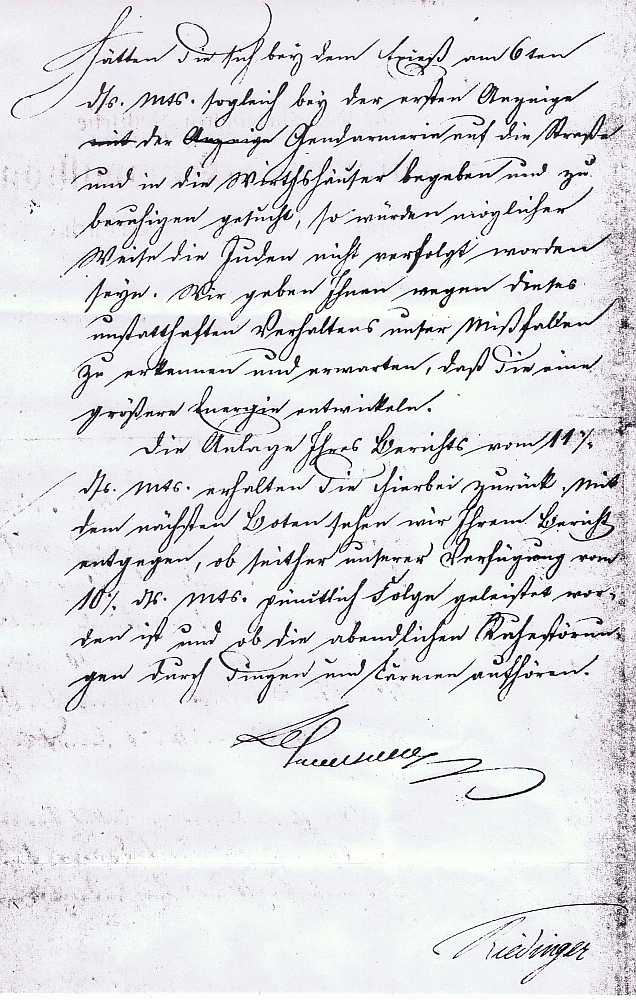 Hätten Sie sich bey dem Exceß am 6ten
ds. Mts. sogleich bey der ersten Anzeige
mit der Anzeige Gendarmerie auf die Straße
und in die Wirthshäuser begeben und zu
beruhigen gesucht, so würden möglicher
Weise die Juden nicht verfolgt worden
seyn. Wir geben Ihnen wegen dieses
unstatthaften Verhaltens unser Mißfallen
zu erkennen und erwarten, daß Sie eine
größere Energie entwickeln.
Die Anlage Ihres Berichts vom 11/.
ds. Mts. erhalten Sie hierbei zurück. Mit
dem nächsten Boten sehen wir Ihrem Bericht
entgegen, ob seither unserer Verfügung vom
10/. ds. Mts. pünktlich Folge geleistet wor-
den ist und ob die abendlichen Ruhestörun-
gen durch Singen und Lärmen aufhören.
Riedinger